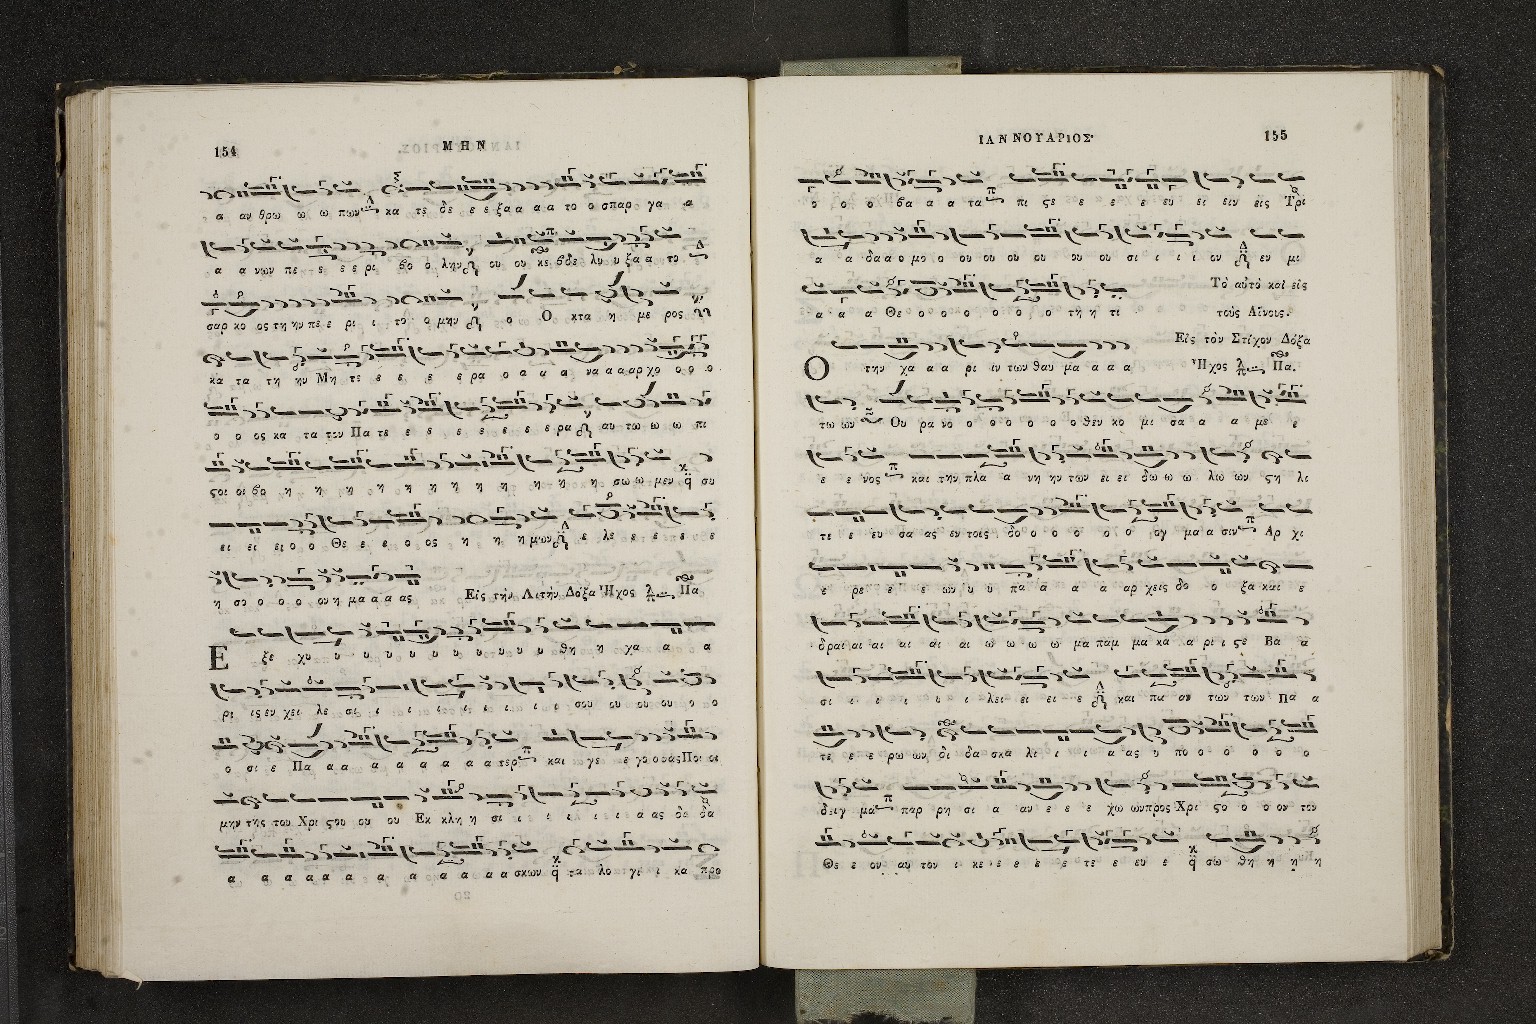 154
ΜΗΝ
α αν θρω ω ω πων κα τε δε ε ξα α α α το ο σπαρ γα α
α α νων πε ε ε ε ρι βο ο λην ου ου κε βδε λυ υ ξα α το
σαρ κο ος τη ην πε ε ρι ι το ο μην ο Ο κτα η με ρος
κα τα τη ην Μη τε ε ε ε ε ρα ο α α α να α α αρ χο ο ο ο
ο ο ος κα τα τον Πα τε ε ε ε ε ε ε ε ρα αυ τω ω ω πι
ςοι οι βο η η η η η η η η η η η σω ω μεν συ
ει ει ει ο ο Θε ε ε ο ος η η η μων ε λε ε ε ε ε ε
η σο ο ο ο ον η μα α α ας Εἰς τὴν Λιτὴν Δόξα Ἦχος Πα
Ε ξε χυ υ υ υ υ υ υ υ υ υ θη η χα α α
ρι ις εν χει λε σι ι ι ι ι ι ι ι ι σου ου ου ου ο ο
ο σι ε Πα α α α α α α α α τερ και γε ε γο ο νας Ποι οι
μην της του Χρι ςου ου ου Εκ κλη η σι ι ι ι ι ι α ας δι δα
α α α α α α α α α α α σκων τα λο γι ι κα προ
ΙΑΝΝΟΥΑΡΙΟΣ
155
ο ο ο βα α α τα πι ςε ε ε ε ε ευ ει ειν εις Τρι
α α δα α ο μο ο ου ου ου ου ου ου σι ι ι ι ον εν μι
α α α Θε ο ο ο ο ο ο τη η τι Τὸ αὐτὸ καὶ εἰς
τοὺς Αἴνους.
Εἰς τὸν Στίχον Δόξα
Ο την χα α α ρι ιν των θαυ μα α α α Ἦχος Πα.
τω ων Ου ρα νο ο ο ο ο ο ο θεν κο μι σα α α με ε
ε ε νος και την πλα α νη ην των ει ει δω ω ω λω ων ςη λι
τε ε ευ σα ας εν τοις δο ο ο ο ο ο ογ μα α σιν Αρ χι
ε ρε ε ε ων υ υ πα α α α αρ χεις δο ο ξα και ε
δραι αι αι αι αι αι ω ω ω ω μα παμ μα κα α ρι ι ςε Βα α
σι ι ι ι ι ι λει ει ει ε και πα αν των των Πα α
τε ε ε ρω ων δι δα σκα λι ι ι α ας υ πο ο ο ο ο ο
δειγ μα παρ ρη σι α αν ε ε ε χω ων προς Χρι ςο ο ο ον τον
Θε ε ον αυ τον ι κε ε ε ε ε τε ε ευ ε σω θη η η η